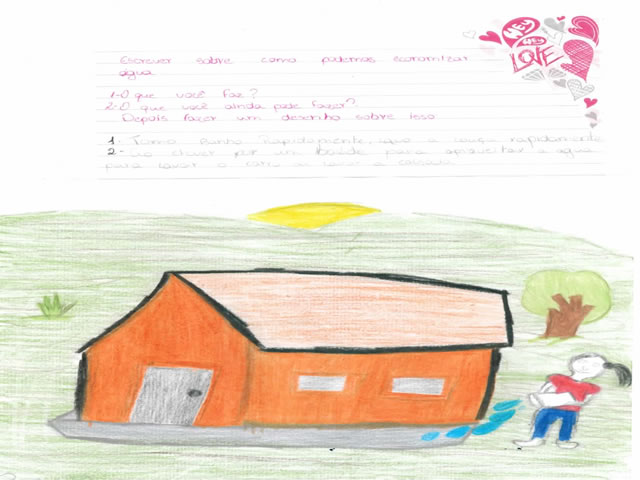 HEY
HEY
LOVE
Escrever sobre como podemos economizar
água
1-O que você faz?
2-O que você ainda pode fazer?
Depois fazer um desenho sobre isso
1- Tomo banho Rapidamente, lavo a louça rapidamente
2- Ao chover por um balde para aproveitar a água
para lavar o carro ou lavar a calçada